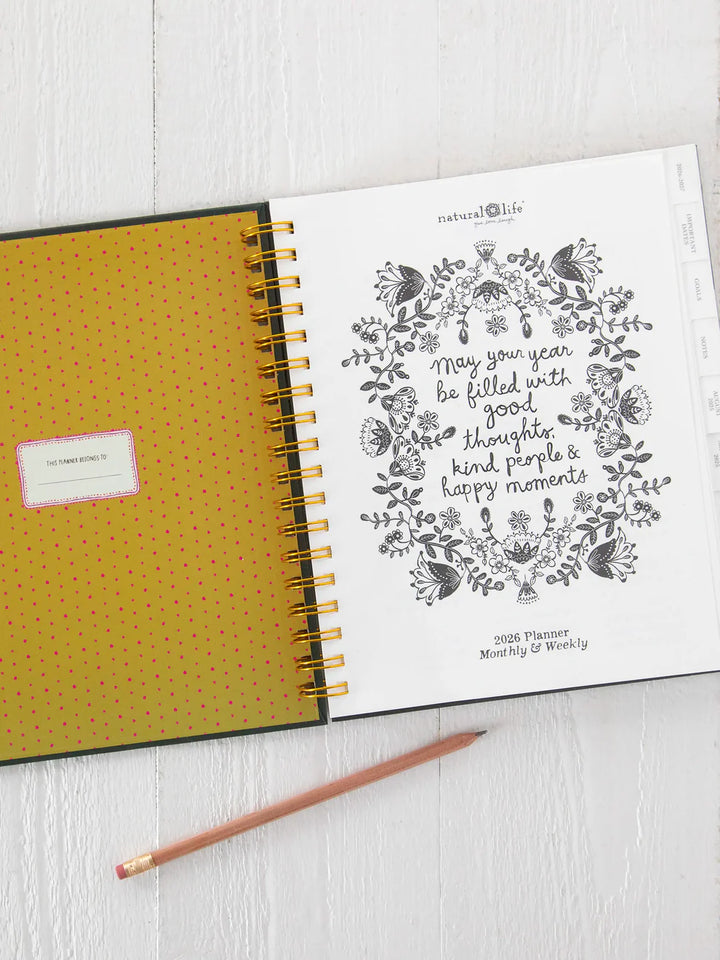 THIS PLANNER BELONGS TO:
natural life
May your year
be filled with
good
thoughts,
kind people &
happy moments
2026 Planner
Monthly & Weekly
2026-2027
IMPORTANT
DATES
GOALS
NOTES